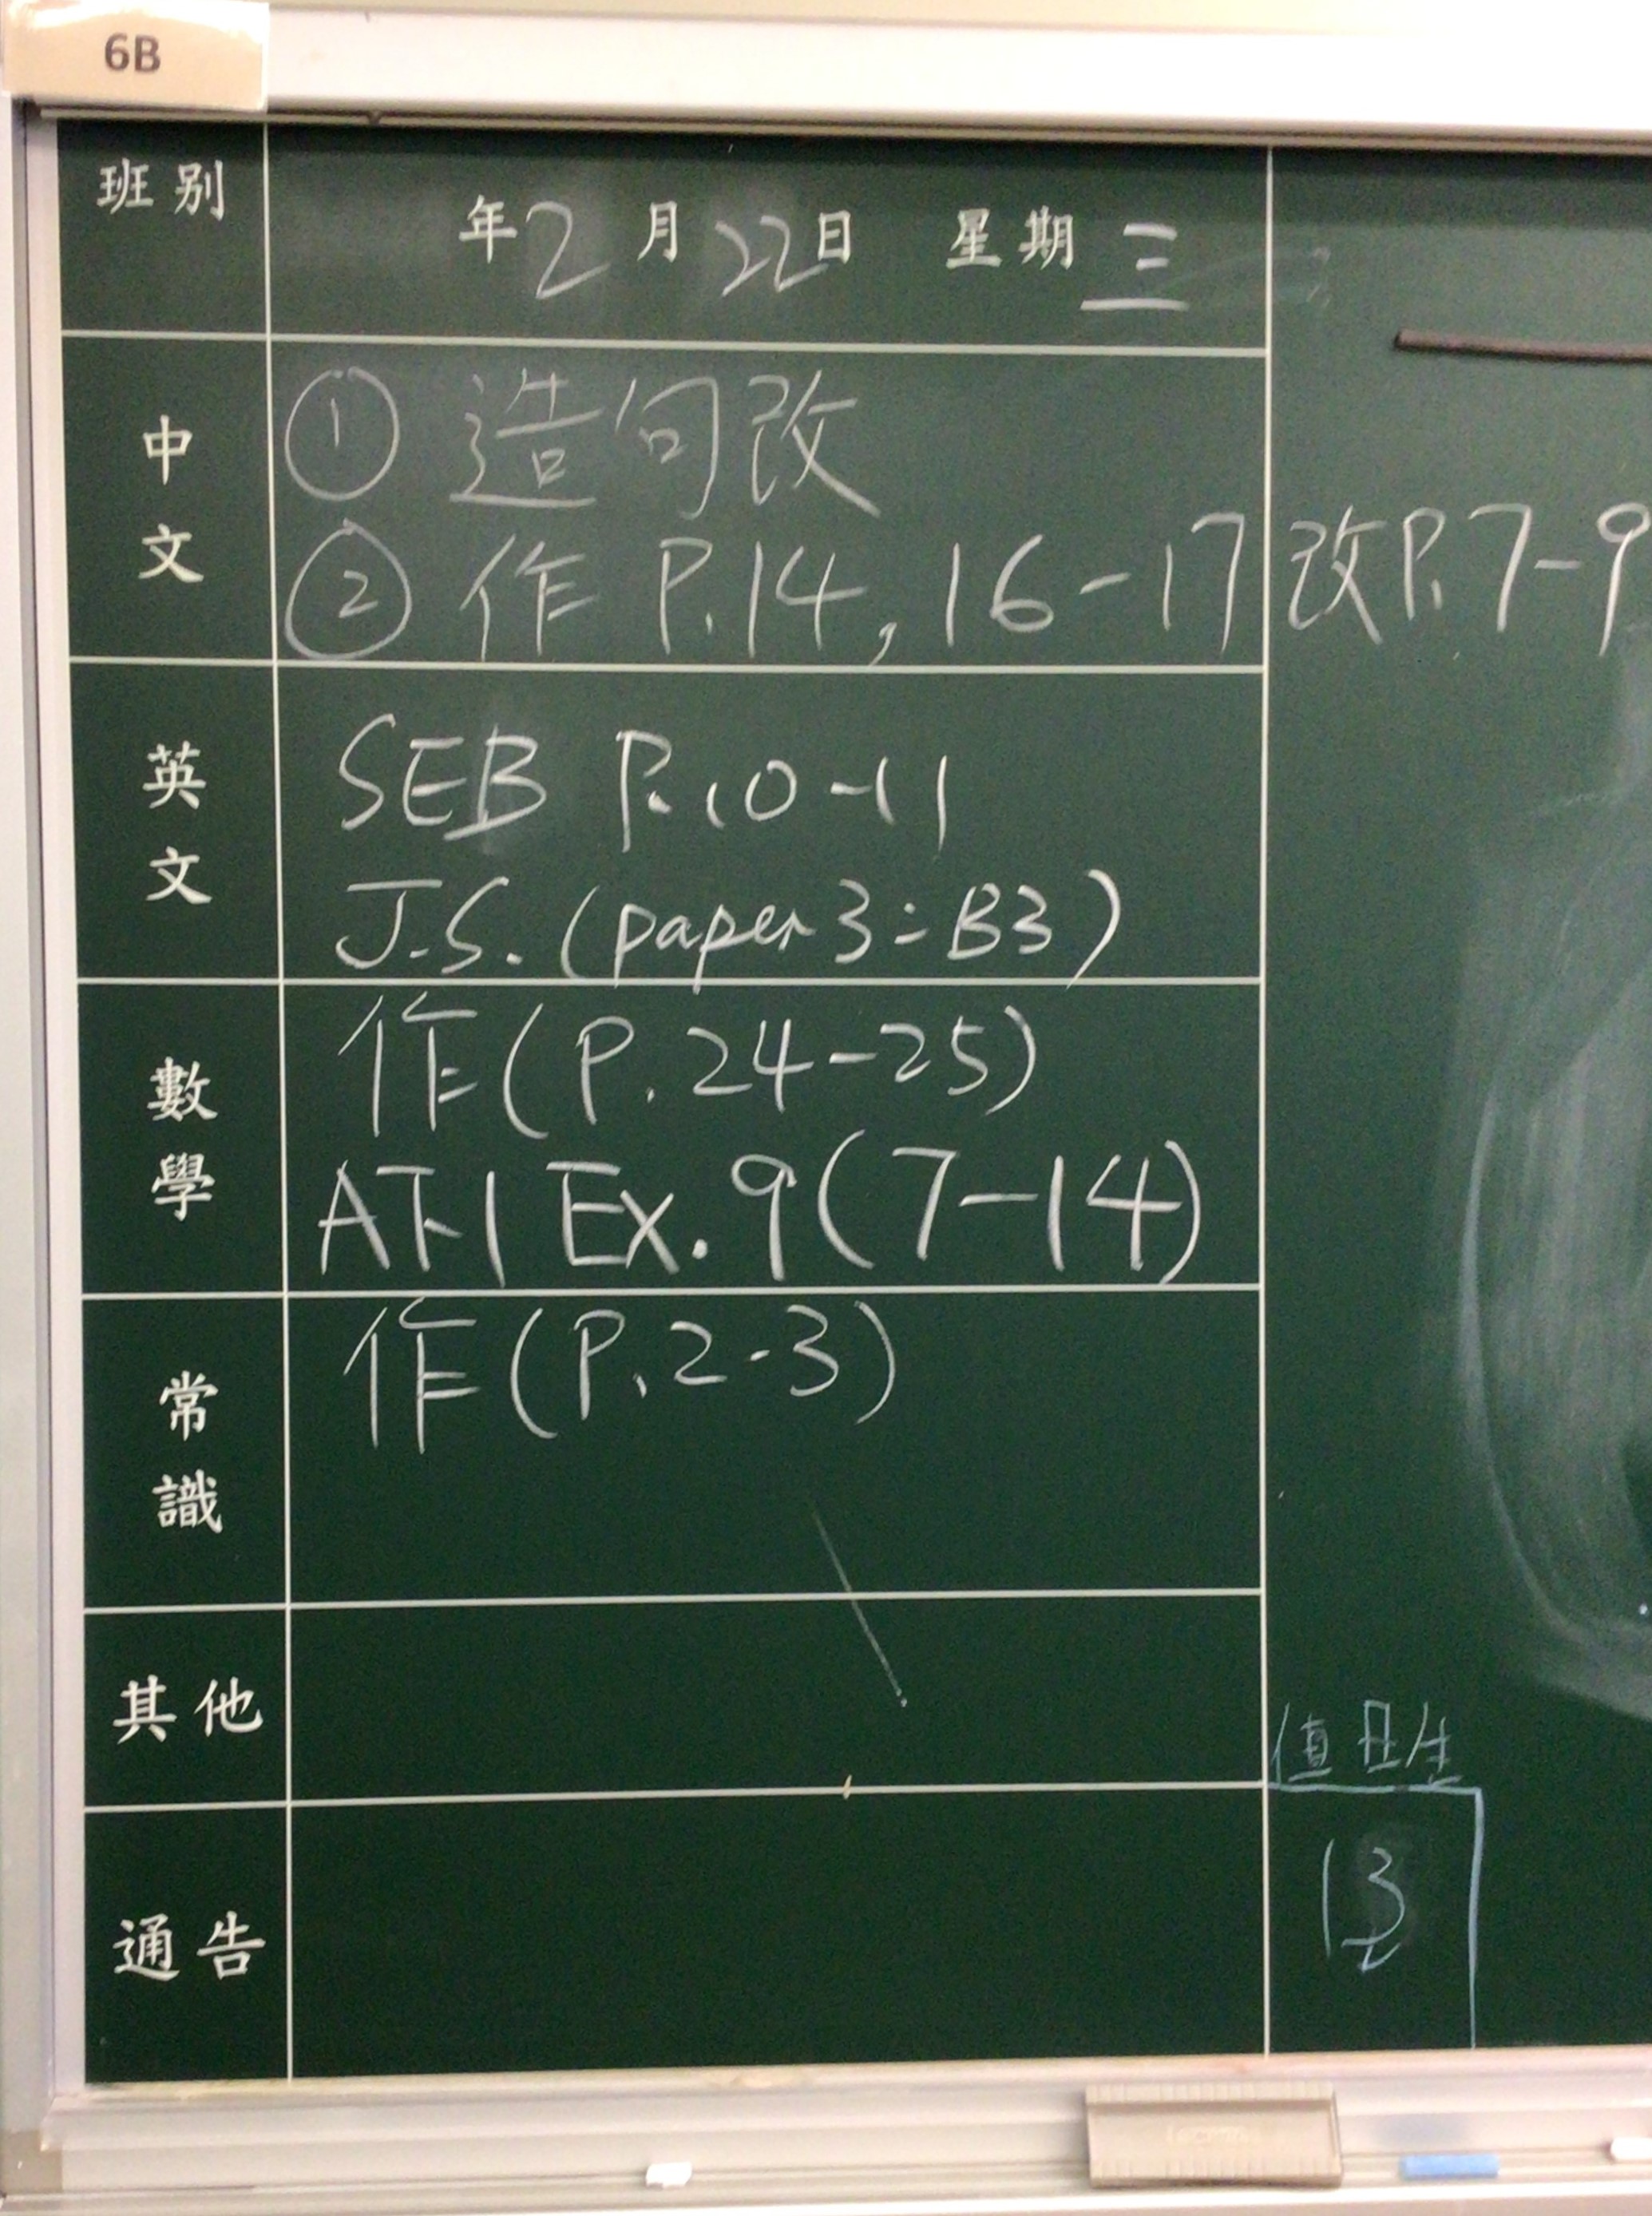 6B
班別
年2月22日 星期三
中文
① 造句改
② 作 P.14, 16-17 改P.7-9
英文
SEB P.10-11
J.S. (paper 3: B3)
數學
作(P.24-25)
AT1 Ex.9(7-14)
常識
作(P.2-3)
其他
值日生
通告
13